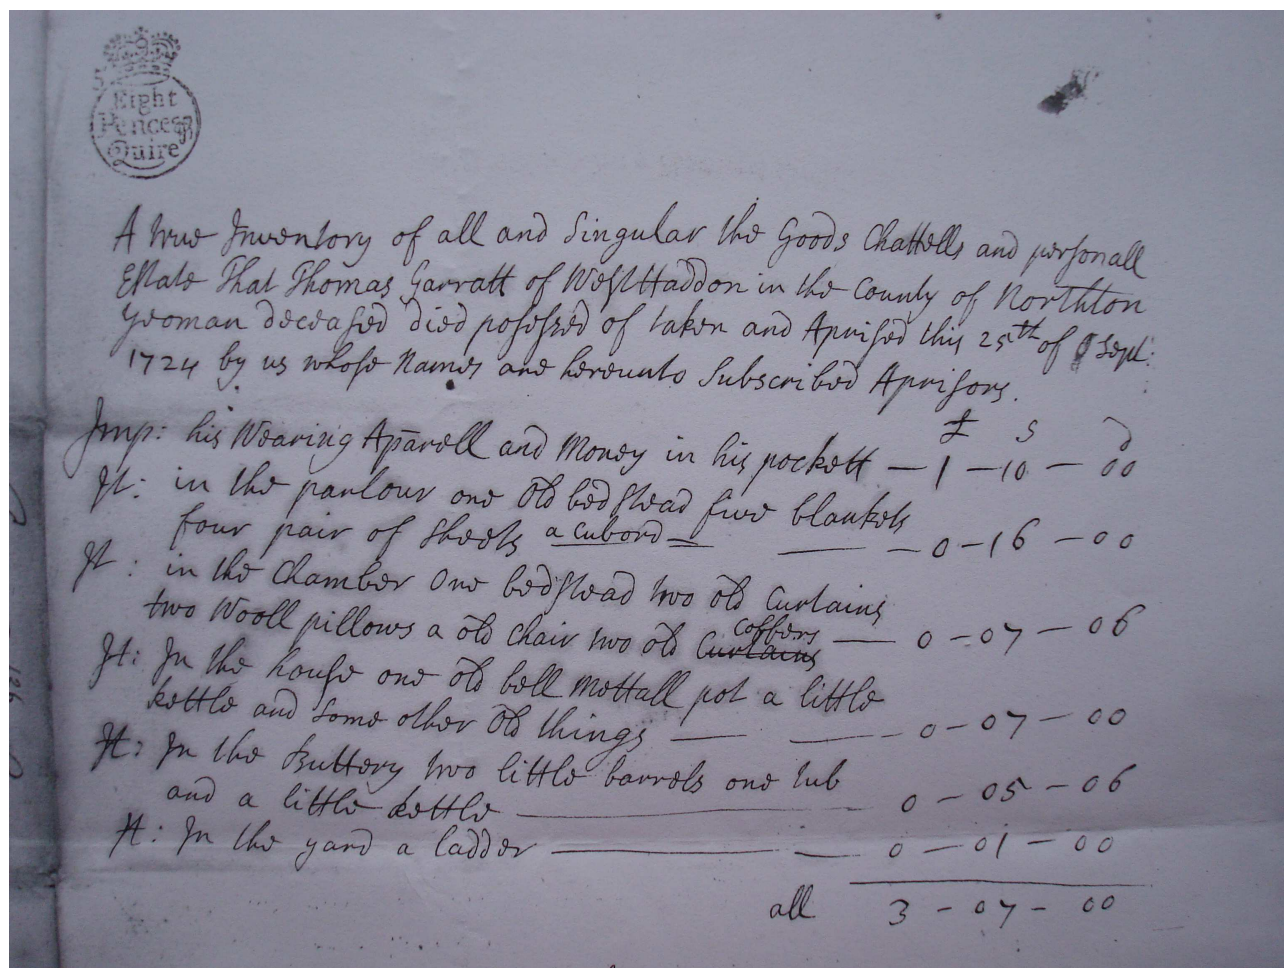 Eight
Pence pr
Quire
A true Inventory of all and Singular the Goods Chattells and personall
Estate That Thomas Garratt of West Haddon in the County of Northton
Yeoman deceased died posessed of taken and Aprised this 25th of Sept:
1724 by us whose Names are hereunto Subscribed Aprisors.
£ s d
Imp: his Wearing Aparell and Money in his pockett — 1 — 10 — 00
It: in the parlour one old bedstead five blankets
four pair of sheets a Cubord — — 0 — 16 — 00
It: in the Chamber One bedstead two old Curtains
two Wooll pillows a old chair two old Curtains coffers — 0 — 07 — 06
It: In the house one old bell Mettall pot a little
kettle and some other old things — — 0 — 07 — 00
It: In the Buttery two little barrels one tub
and a little kettle — 0 — 05 — 06
It: In the yard a ladder — — 0 — 01 — 00
all 3 — 07 — 00